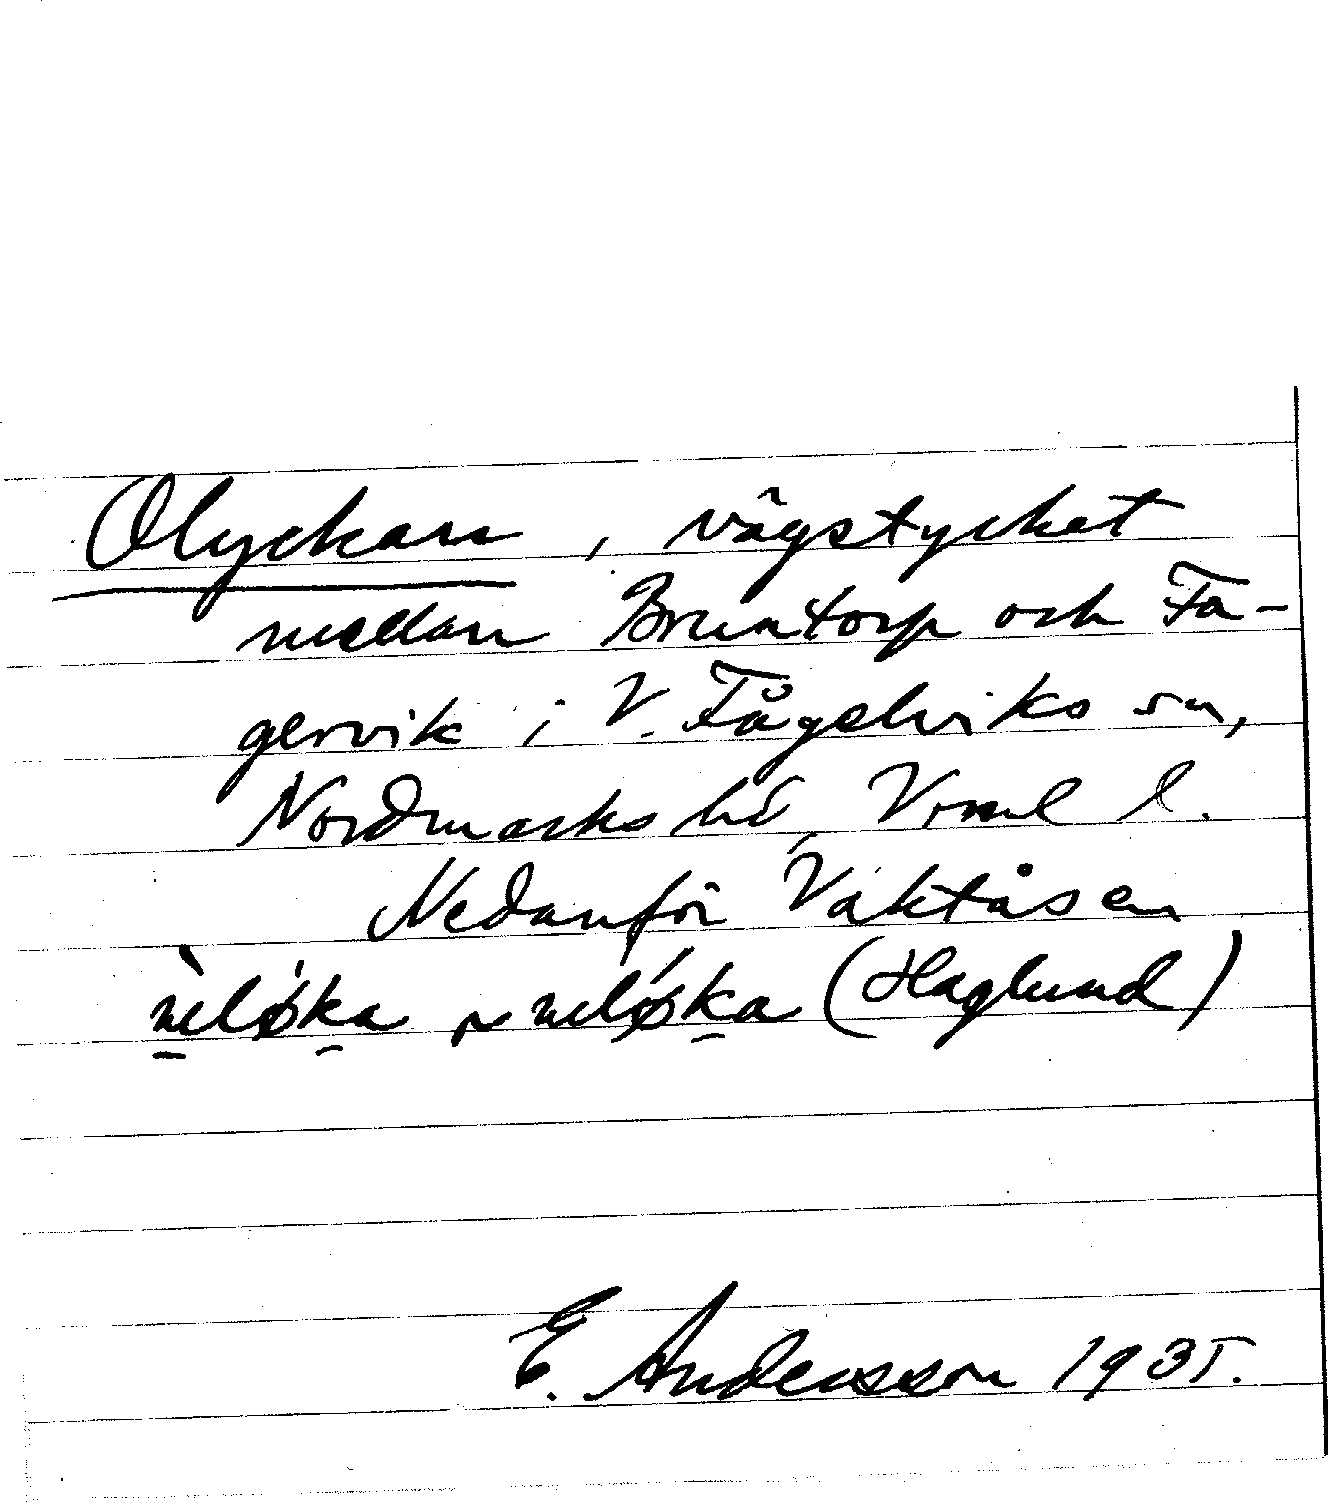 Olyckan, vägstycket
mellan Bruntorp och Fa-
gervik i V. Fågelviks sn,
Nordmarks hd, Vrml l.
Nedanför Vaktåsen
(Haglund)
E. Andersson 1935.